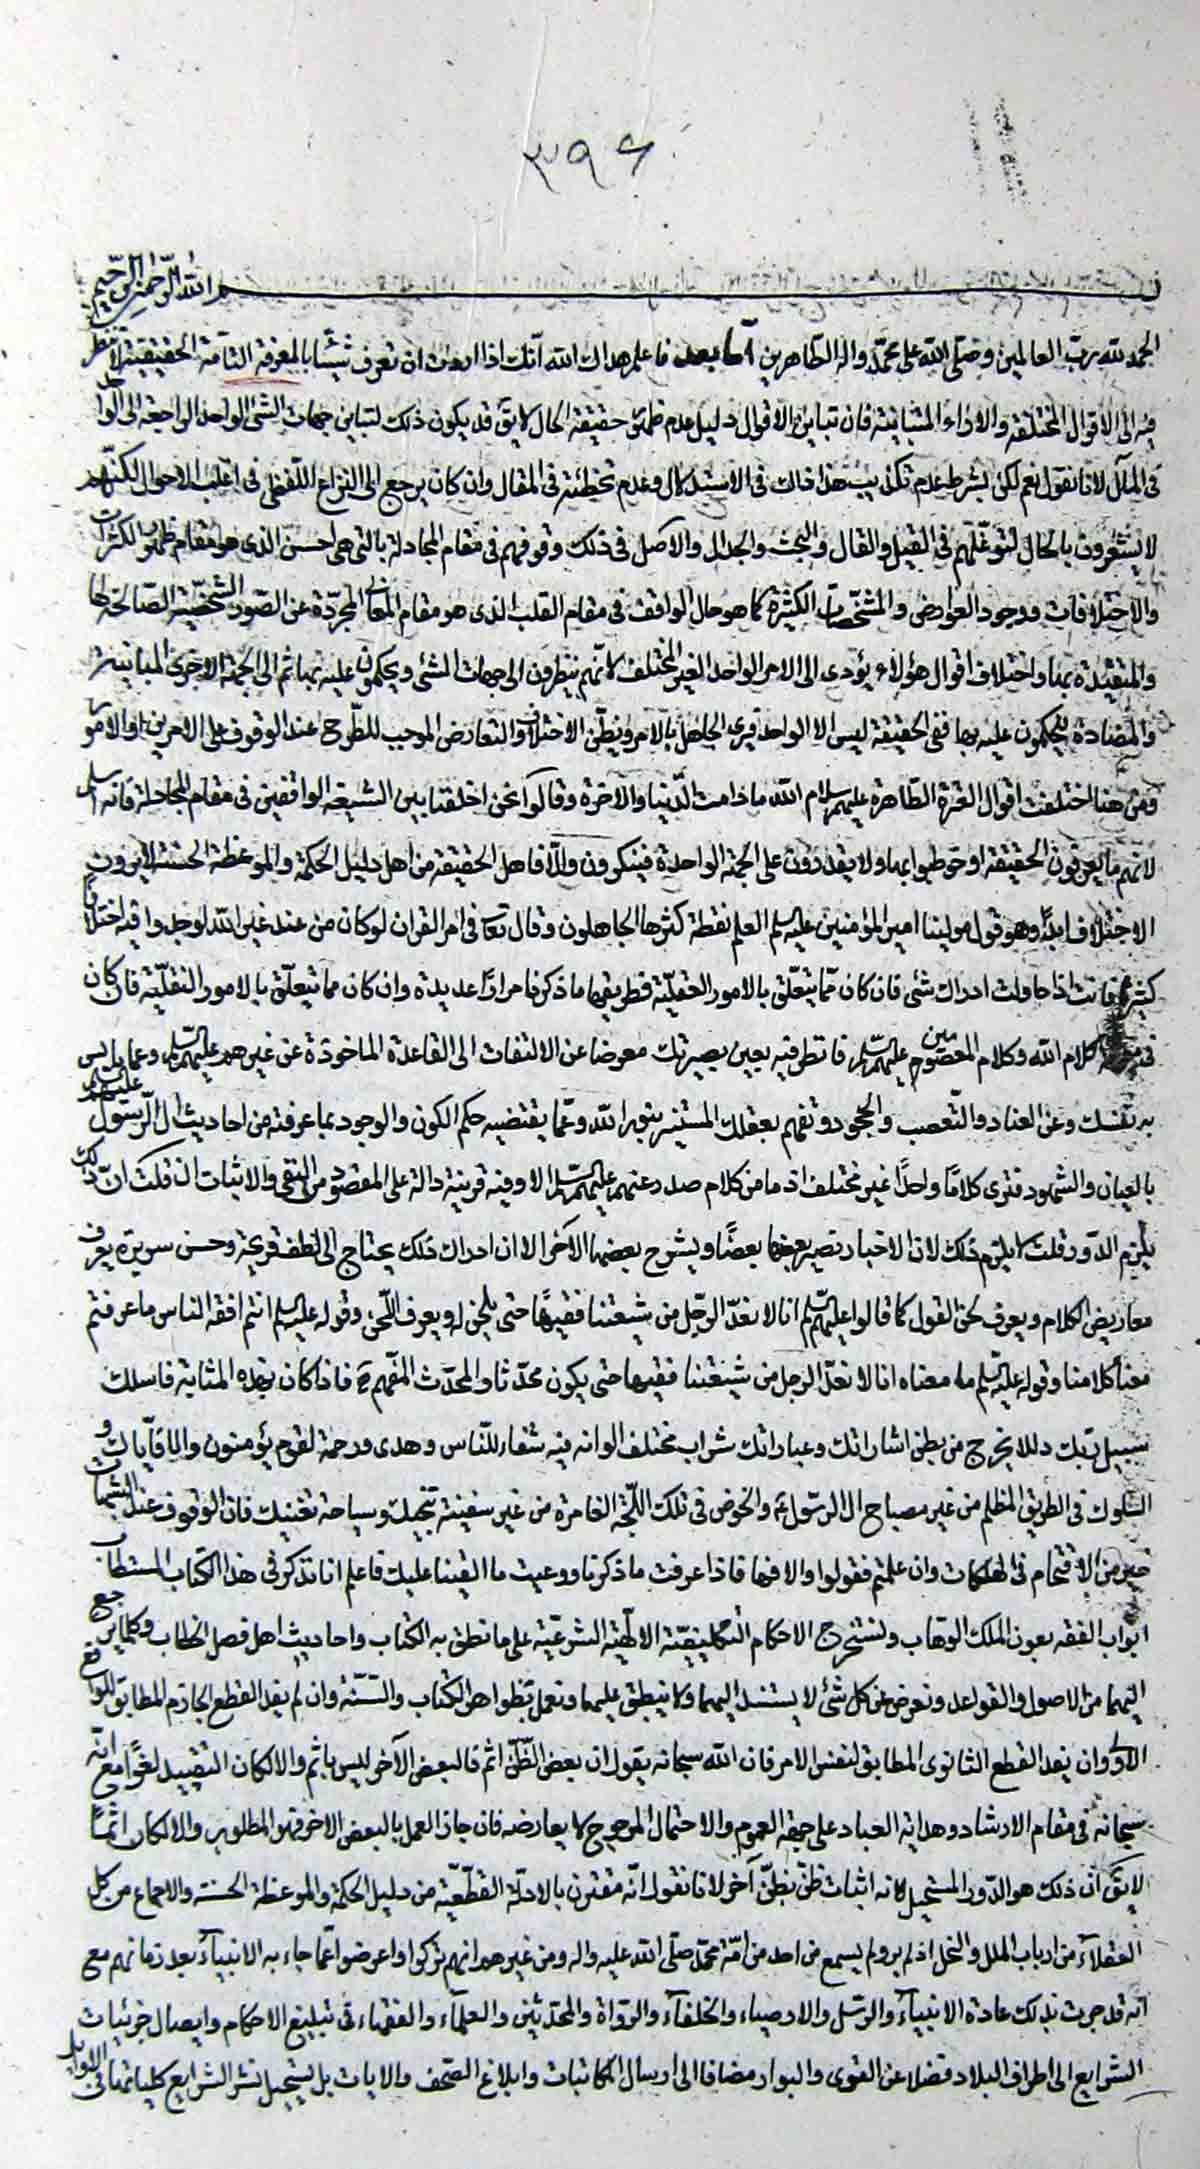 ٣٩٤
بسم الله الرحمن الرحيم
الحمد لله رب العالمين وصلى الله على محمد واله الطاهرين اما بعد فاعلم هداك الله انك اذا اردت ان تعرف شيئا بالمعرفة التامة الحقيقية لا تنظر
فيه الى الاقوال المختلفة والاراء المتباينة فان تباين الاقوال دليل عدم حقيقة الحال لا يق قد يكون ذلك لتباين جهات الشئ الواحد الراجعة الى الواحد
في المآل لانا نقول نعم لكن بشرط عدم تكذيب هذا ذاك في الاستدلال وعدم تخطئته في المقال وان كان يرجع الى النزاع اللفظي في اغلب الاحوال لكنهم
لا يشعرون بالحال لتوغلهم في القيل والقال والبحث والجدال والاصل في ذلك وقوفهم في مقام المجادلة بالتي هي احسن الذي هو مقام ظهور الكثرات
والاختلافات ووجود العوارض والمشخصات الكثيرة كما هو حال الواقف في مقام القلب الذي هو مقام المعاني المجردة عن الصور الشخصية الصالحة لها
والمتقيدة بها واختلاف اقوال هؤلاء يؤدى الى الامر الواحد الغير المختلف لانهم ينظرون الى جهات الشئ ويحكمون عليه بها ثم الى الجهة الاخرى المباينة
والمضادة فيحكمون عليه بها ففي الحقيقة ليس الا الواحد فيرى الجاهل بالامر ويظن الاختلاف والتعارض الموجب للطرح عند الوقوف على الامرين او الامور
ومن هنا اختلفت اقوال العترة الطاهرة عليهم سلام الله ما دامت الدنيا والاخرة وقالوا نحن اوقعنا الخلاف بين الشيعة الواقفين في مقام المجادلة فانه اسلم
لانهم ما يعرفون الحقيقة لو خوطبوا بها ولا يقدرون على الجهة الواحدة فينكرون والا فاهل الحقيقة من اهل دليل الحكمة والموعظة الحسنة لا يرون
الاختلاف ابدا وهو قول مولينا امير المؤمنين عليه السلم العلم نقطة كثرها الجاهلون وقال تعالى في امر القران لو كان من عند غير الله لوجدوا فيه اختلافا
كثيرا فانت اذا حاولت ادراك شئ فان كان مما يتعلق بالامور العقلية فطريقها ما ذكرنا مرارا عديدة وان كان مما يتعلق بالامور النقلية فان كان
في كلام الله وكلام المعصومين عليهم السلم فانظر فيه بعين بصيرتك معرضا عن الالتفات الى القاعدة الماخوذة عن غيرهم عليهم السلم وعما يانس
به نفسك وعن العناد والتعصب والجحود وتفهم بعقلك المستنير بنور الله وعما يقتضيه حكم الكون والوجود بما عرفته من احاديث ال الرسول عليهم السلم
بالعيان والشهود فترى كلاما واحدا غير مختلف اذ ما من كلام صدر عنهم عليهم السلم الا وفيه قرينة دالة على المقصود من النفي والاثبات ان قلت ان ذلك
يلزم الدور قلت لا يلزم ذلك لان الاخبار تصير بعضها بعضا ويشرح بعضها الآخر الا ان ادراك ذلك يحتاج الى لطف قريحة وحسن سريرة يعرف
معاريض الكلام ويعرف لحن القول كما قالوا عليهم السلم انا لا نعد الرجل من شيعتنا فقيها حتى يلحن له ويعرف اللحن وقوله عليه السلم انتم افقه الناس ما عرفتم
معنا كلامنا وقوله عليه السلم ما معناه انا لا نعد الرجل من شيعتنا فقيها حتى يكون محدثا والمحدث المفهم فاذا كان بهذه المثابة فاسلك
سبيل ربك ذللا يخرج من بطن اشاراتك وعباراتك شراب مختلف الوانه فيه شفاء للناس وهدى ورحمة لقوم يؤمنون والا فاياك و
السلوك في الطريق المظلم من غير مصباح ال الرسول والخوض في تلك اللجة الغامرة من غير سفينة تنجيك وسباحة تغنيك فان الوقوف عند الشبهات
خير من الاقتحام في الهلكات وان علمتم فقولوا والا فها فاذا عرفت ما ذكرنا ووعيت ما القينا عليك فاعلم انا نذكر في هذا الكتاب المستطاب
ابواب الفقه بعون الملك الوهاب ونستخرج الاحكام التكليفية الالهية الشرعية على ما نطق به الكتاب واحاديث اهل فصل الخطاب وكلما يرجع
اليهما من الاصول والقواعد ونعرض عن كل شئ لا يستند اليهما ولا ينطبق عليهما ونعمل بظواهر الكتاب والسنة وان لم يفد القطع الجازم المطابق للواقع
الاولى وان يفد القطع الثانوى المطابق لنفس الامر فان الله سبحانه يقول ان بعض الظن اثم فالبعض الآخر ليس باثم والا لكان التقييد لغوا مع انه
سبحانه في مقام الارشاد وهداية العباد على جهة العموم والاحتمال المرجوح لا يعارضه فان جاز العمل بالبعض الاخر فهو المطلوب والا لكان اثما
لا يق ان ذلك هو الدور المستحيل لانه اثبات ظن بظن آخر لانا نقول انه مقترن بالادلة القطعية من دليل الحكمة والموعظة الحسنة والاجماع من كل
العقلاء من ارباب الملل والنحل اذ لم ير ولم يسمع من احد من امة محمد صلى الله عليه واله ومن غيرهم انهم تركوا واعرضوا عما جاء به الانبياء بعد زمانهم مع
انه قد جرت بذلك عادة الانبياء والرسل والاوصياء والخلفاء والرواة والمحدثين والعلماء والفقهاء في تبليغ الاحكام وايصال جزئيات
الشرايع الى اطراف البلاد فضلا عن القرى والبواد مضافا الى ارسال المكاتبات وابلاغ الصحف والايات بل يستحيل نشر الشرايع كلياتها في